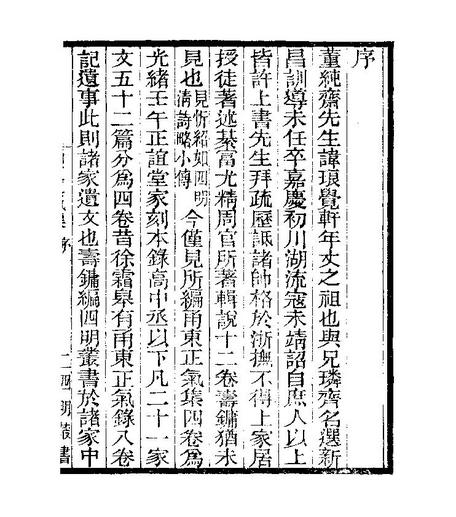 序
董純齋先生諱琅覺軒年丈之祖也與兄璘齊名選新
昌訓導未任卒嘉慶初川湖流寇未靖詔自庶人以上
皆許上書先生拜疏歷詆諸帥格於浙撫不得上家居
授徒著述綦富尤精周官所著輯說十二卷壽鏞猶未
見也見忻紹如四明清詩略小傳今僅見所編甬東正氣集四卷為
光緒壬午正誼堂家刻本錄高中丞以下凡二十一家
文五十二篇分為四卷昔徐霜皋有甬東正氣錄八卷
記遺事此則諸家遺文也壽鏞編四明叢書於諸家中
序
一四明叢書